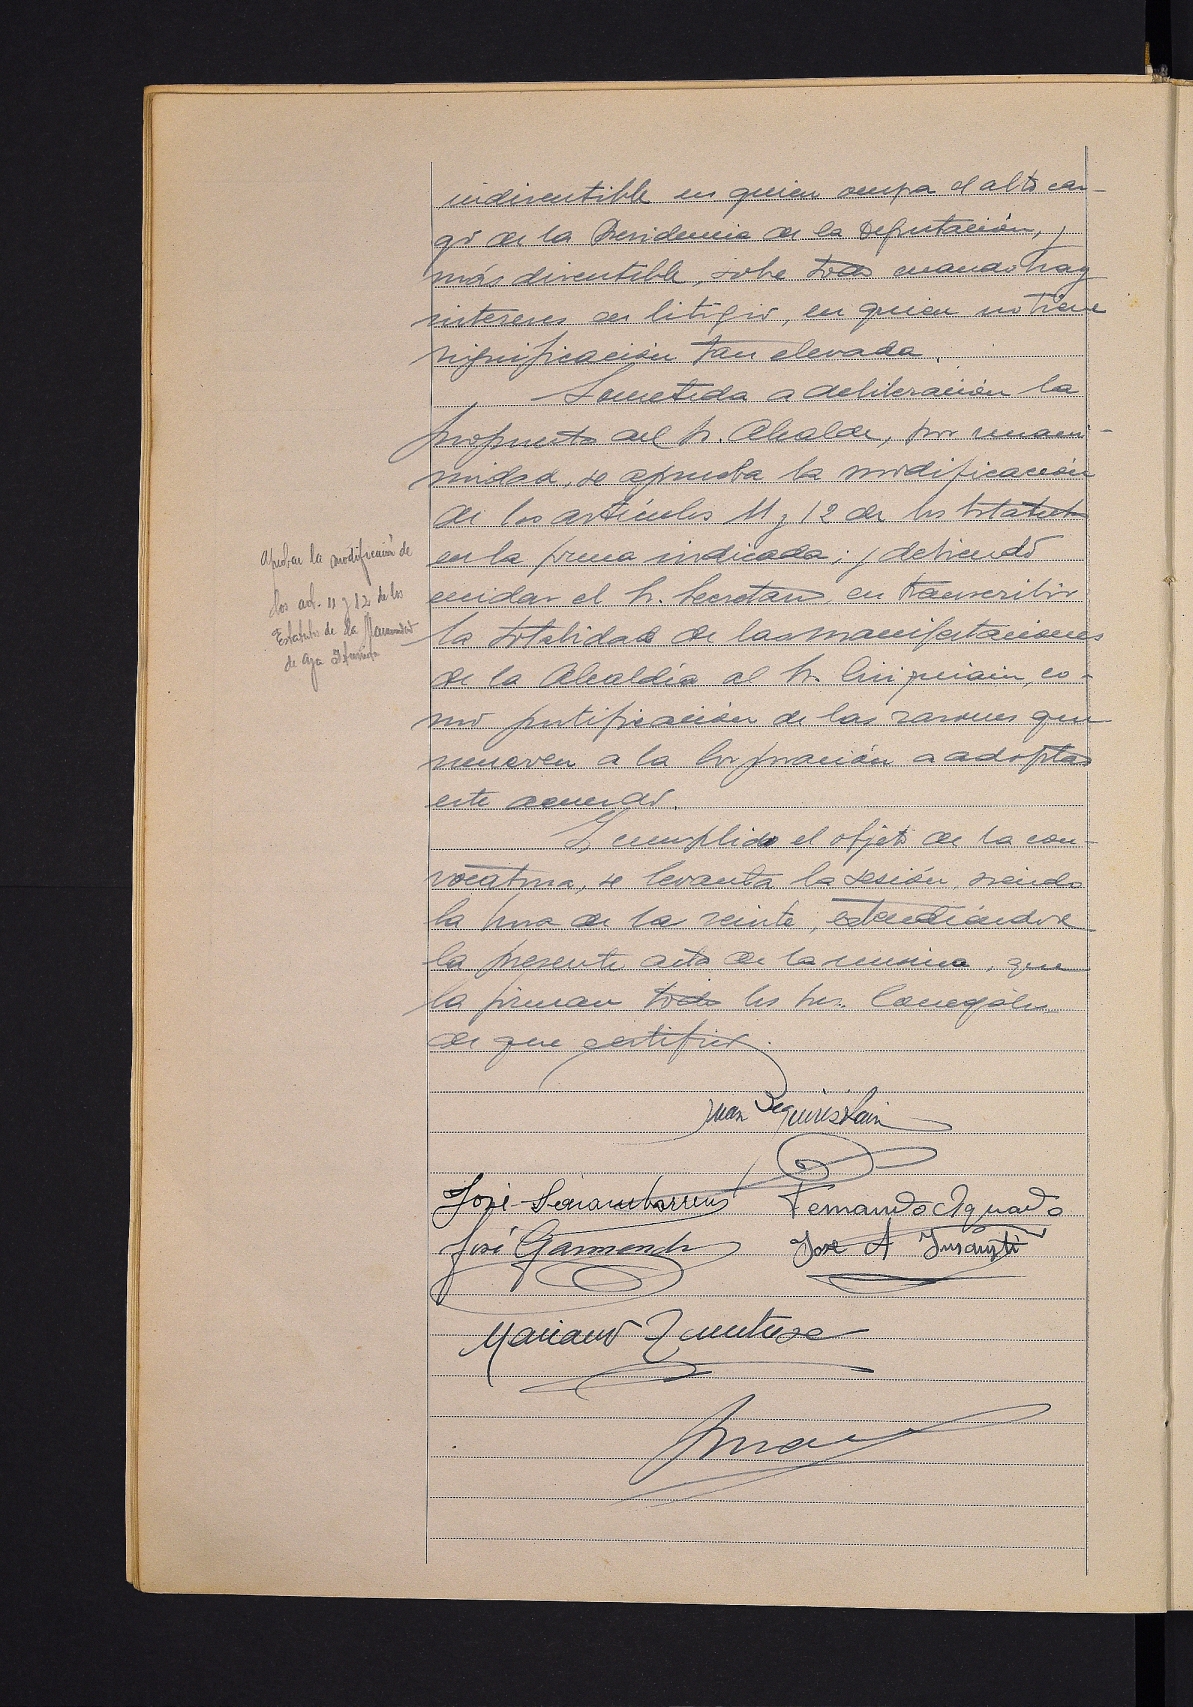 indiscutible en quien ocupa el alto car-
go de la Presidencia de la Diputación, y
más discutible, sobre todo cuando hay
intereses en litigio, en quien no tiene
significación tan elevada.
Sometida a deliberación la
propuesta del Sr. Alcalde, por unani-
midad, se aprueba la modificación
de los artículos 11 y 12 de los Estatutos
en la forma indicada; y debiendo
cuidar el Sr. Secretario en transcribir
la totalidad de las manifestaciones
de la Alcaldía al Sr. Ciriquiain, co-
mo justificación de las razones que
mueven a la Corporación a adoptar
este acuerdo.
Y cumplido el objeto de la con-
vocatoria, se levanta la sesión, siendo
la hora de la veinte, extendiéndose
la presente acta de la misma, que
la firman todos los Sres. Concejales
de que certifico.
Aprobar la modificación de
los art. 11 y 12 de los
Estatutos de la Mancomunidad
de
Juan
José Fernando Aguado
José Garmendia José A
Mariano